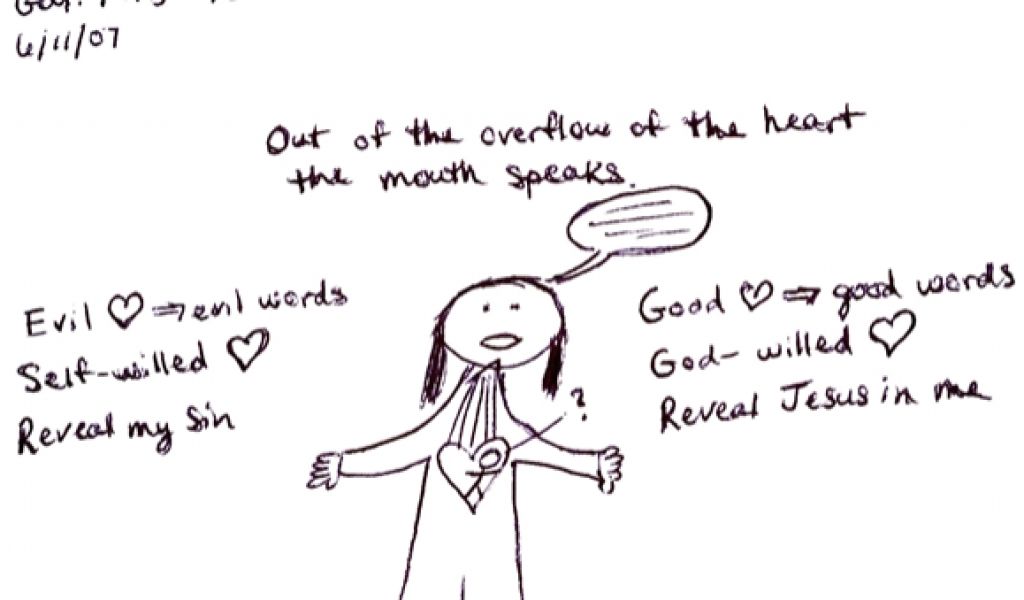 6/11/07
Out of the overflow of the heart
the mouth speaks.
Evil ♡ ⇒ evil words
Self-willed ♡
Reveal my Sin
Good ♡ ⇒ good words
God-willed ♡
Reveal Jesus in me
?